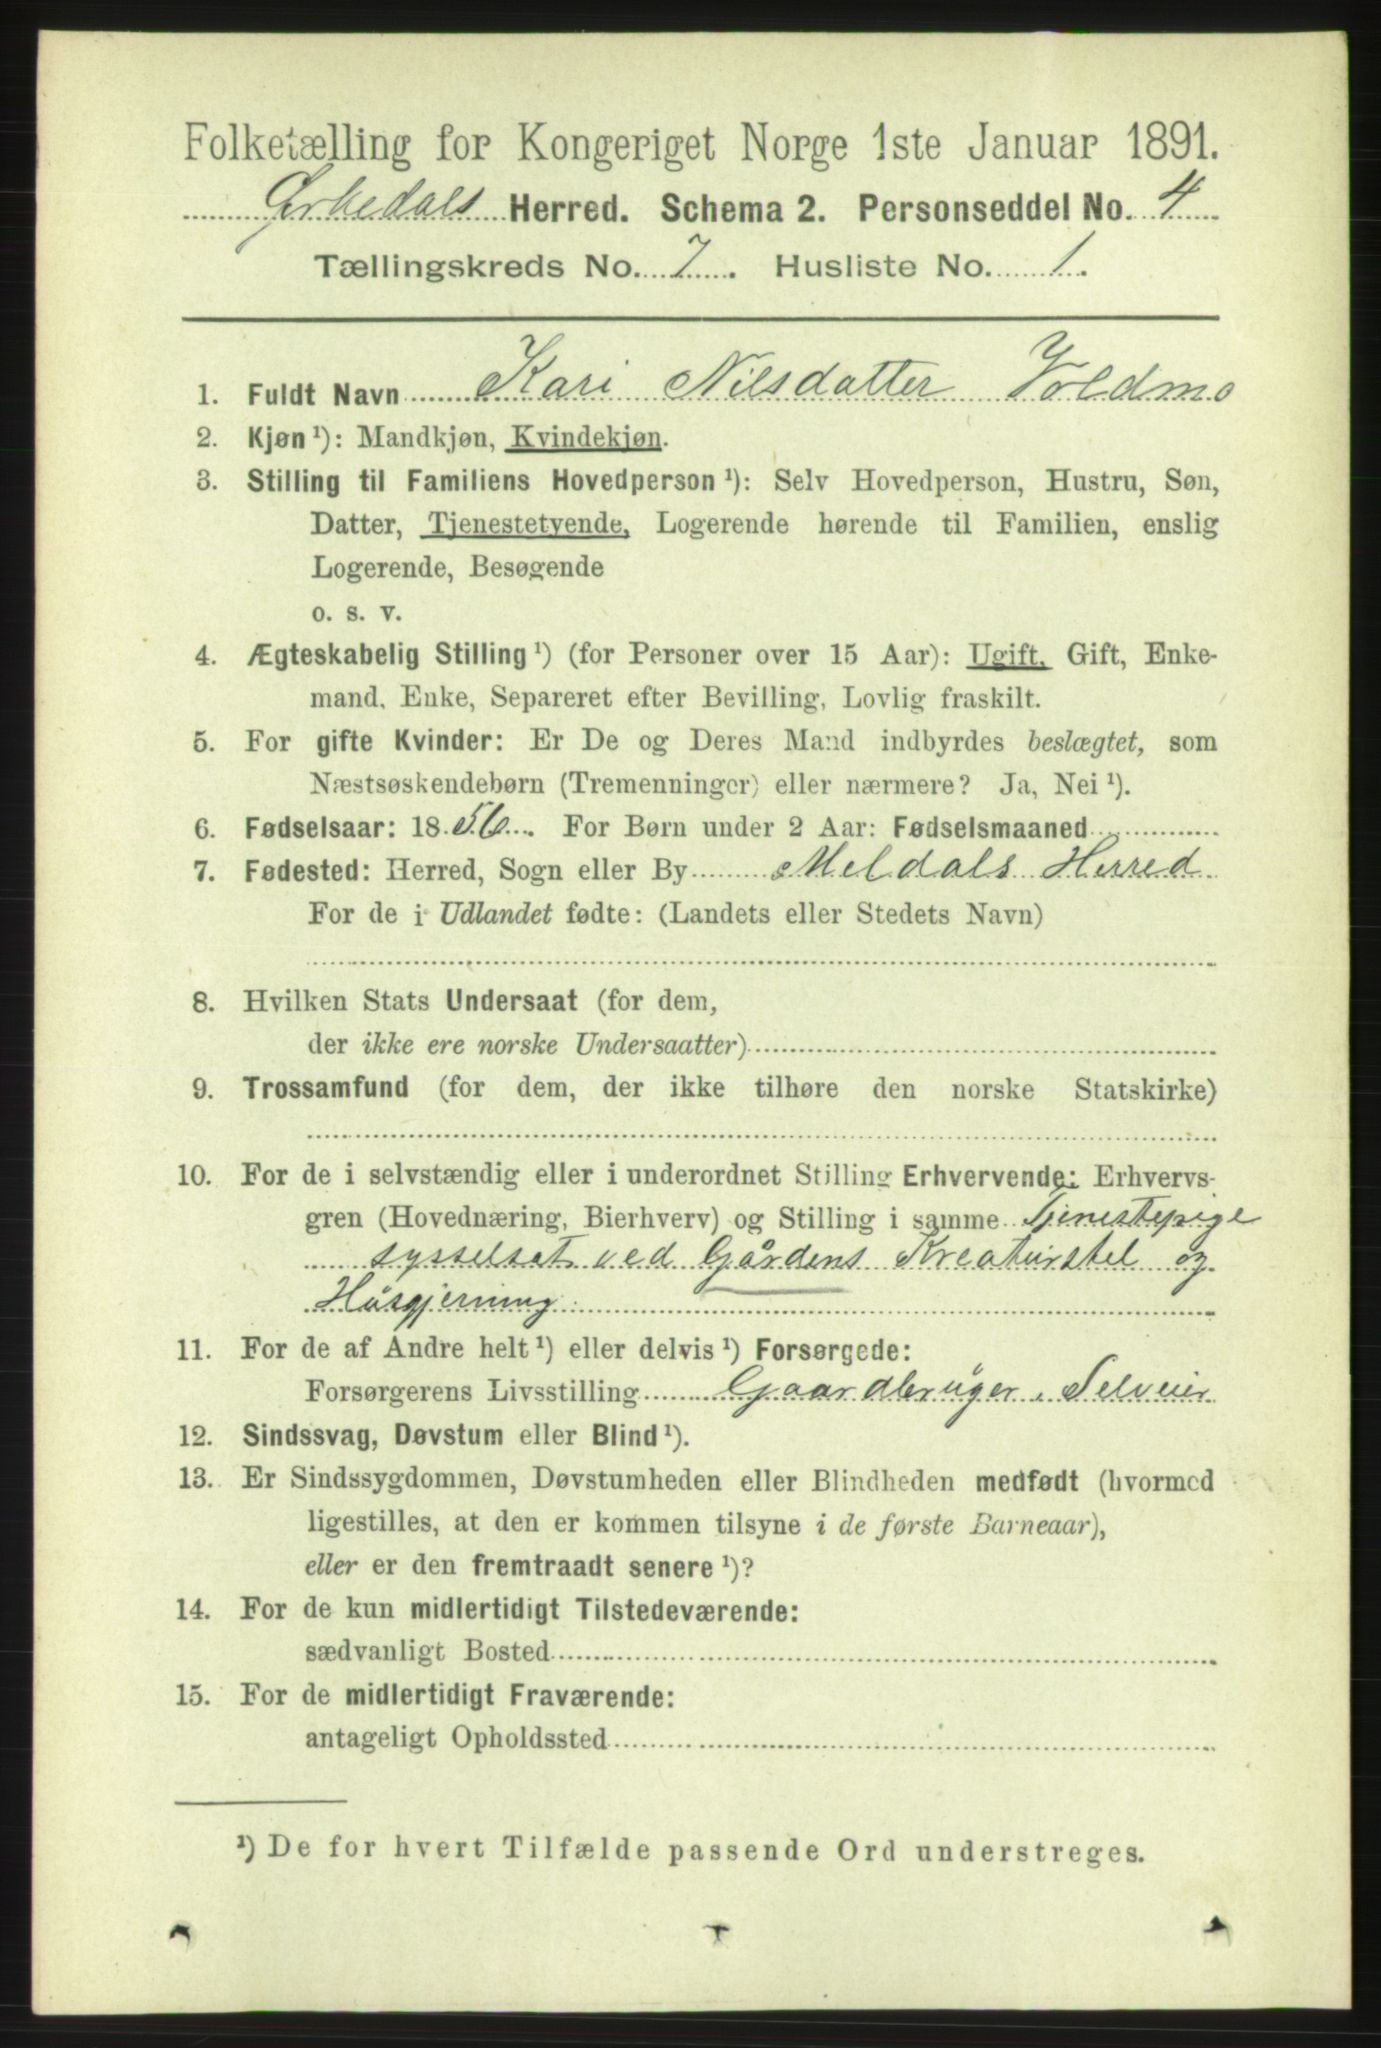 Folketælling for Kongeriget Norge 1ste Januar 1891.
Ørkedals Herred. Schema 2. Personseddel No. 4
Tællingskreds No. 7. Husliste No. 1.
1. Fuldt Navn Kari Nilsdatter Voldmo
2. Kjøn ¹): Mandkjøn, Kvindekjøn.
3. Stilling til Familiens Hovedperson ¹): Selv Hovedperson, Hustru, Søn,
Datter, Tjenestetyende, Logerende hørende til Familien, enslig
Logerende, Besøgende
o. s. v.
4. Ægteskabelig Stilling ¹) (for Personer over 15 Aar): Ugift, Gift, Enke-
mand, Enke, Separeret efter Bevilling, Lovlig fraskilt.
5. For gifte Kvinder: Er De og Deres Mand indbyrdes beslægtet, som
Næstsøskendebørn (Tremenninger) eller nærmere? Ja, Nei ¹).
6. Fødselsaar: 1856. For Børn under 2 Aar: Fødselsmaaned
7. Fødested: Herred, Sogn eller By Meldals Herred
For de i Udlandet fødte: (Landets eller Stedets Navn)
8. Hvilken Stats Undersaat (for dem,
der ikke ere norske Undersaatter)
9. Trossamfund (for dem, der ikke tilhøre den norske Statskirke)
10. For de i selvstændig eller i underordnet Stilling Erhvervende: Erhvervs-
gren (Hovednæring, Bierhverv) og Stilling i samme Tjenestepige
sysselsat ved Gårdens Kreaturstel og
Husgjerning
11. For de af Andre helt ¹) eller delvis ¹) Forsørgede:
Forsørgerens Livsstilling Gaardbruger, Selveier
12. Sindssvag, Døvstum eller Blind ¹).
13. Er Sindssygdommen, Døvstumheden eller Blindheden medfødt (hvormed
ligestilles, at den er kommen tilsyne i de første Barneaar),
eller er den fremtraadt senere ¹)?
14. For de kun midlertidigt Tilstedeværende:
sædvanligt Bosted
15. For de midlertidigt Fraværende:
antageligt Opholdssted
¹) De for hvert Tilfælde passende Ord understreges.